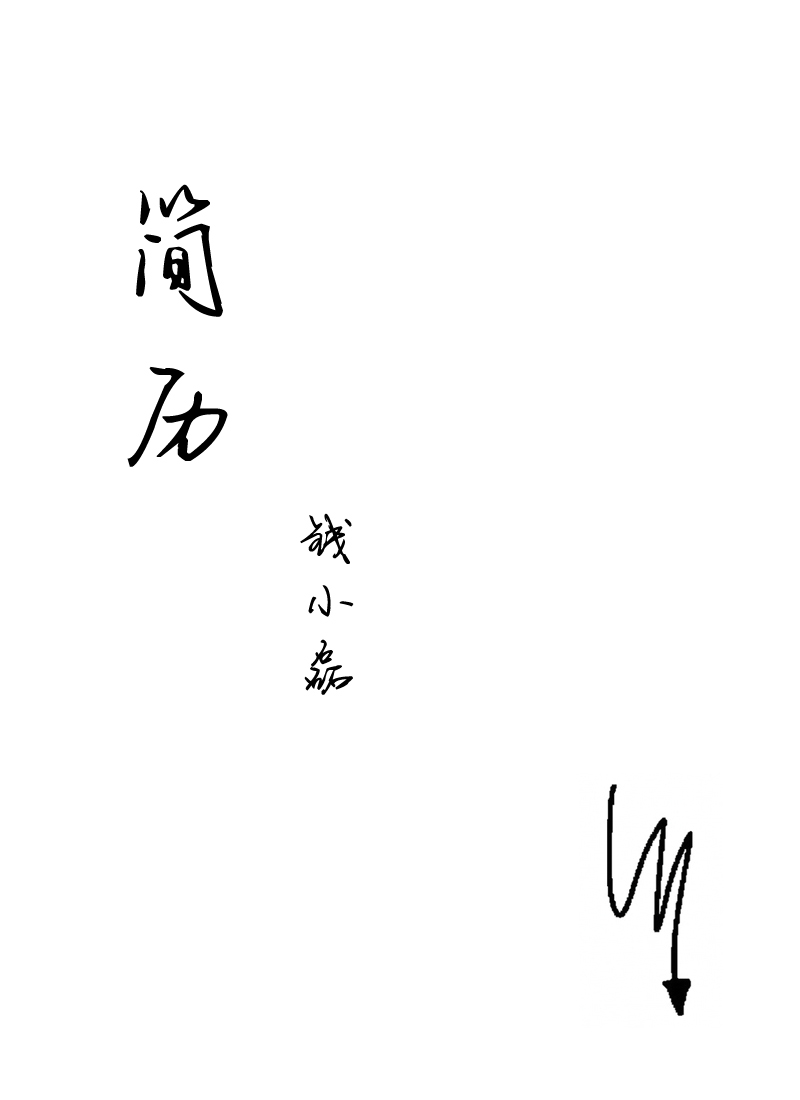 简历
钱小磊